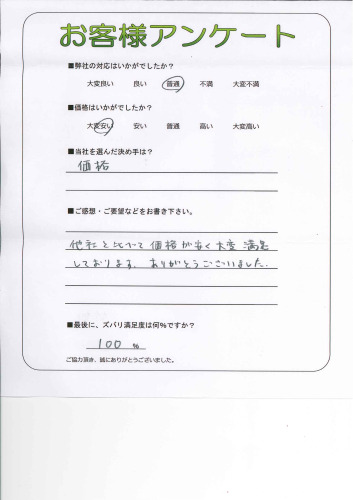 お客様アンケート
■弊社の対応はいかがでしたか？
大変良い 良い 普通 不満 大変不満
■価格はいかがでしたか？
大変安い 安い 普通 高い 大変高い
■当社を選んだ決め手は？
価格
■ご感想・ご要望などをお書き下さい。
他社と比べて価格が安く大変満足
しております。ありがとうございました。
■最後に、ズバリ満足度は何%ですか？
100 %
ご協力頂き、誠にありがとうございました。